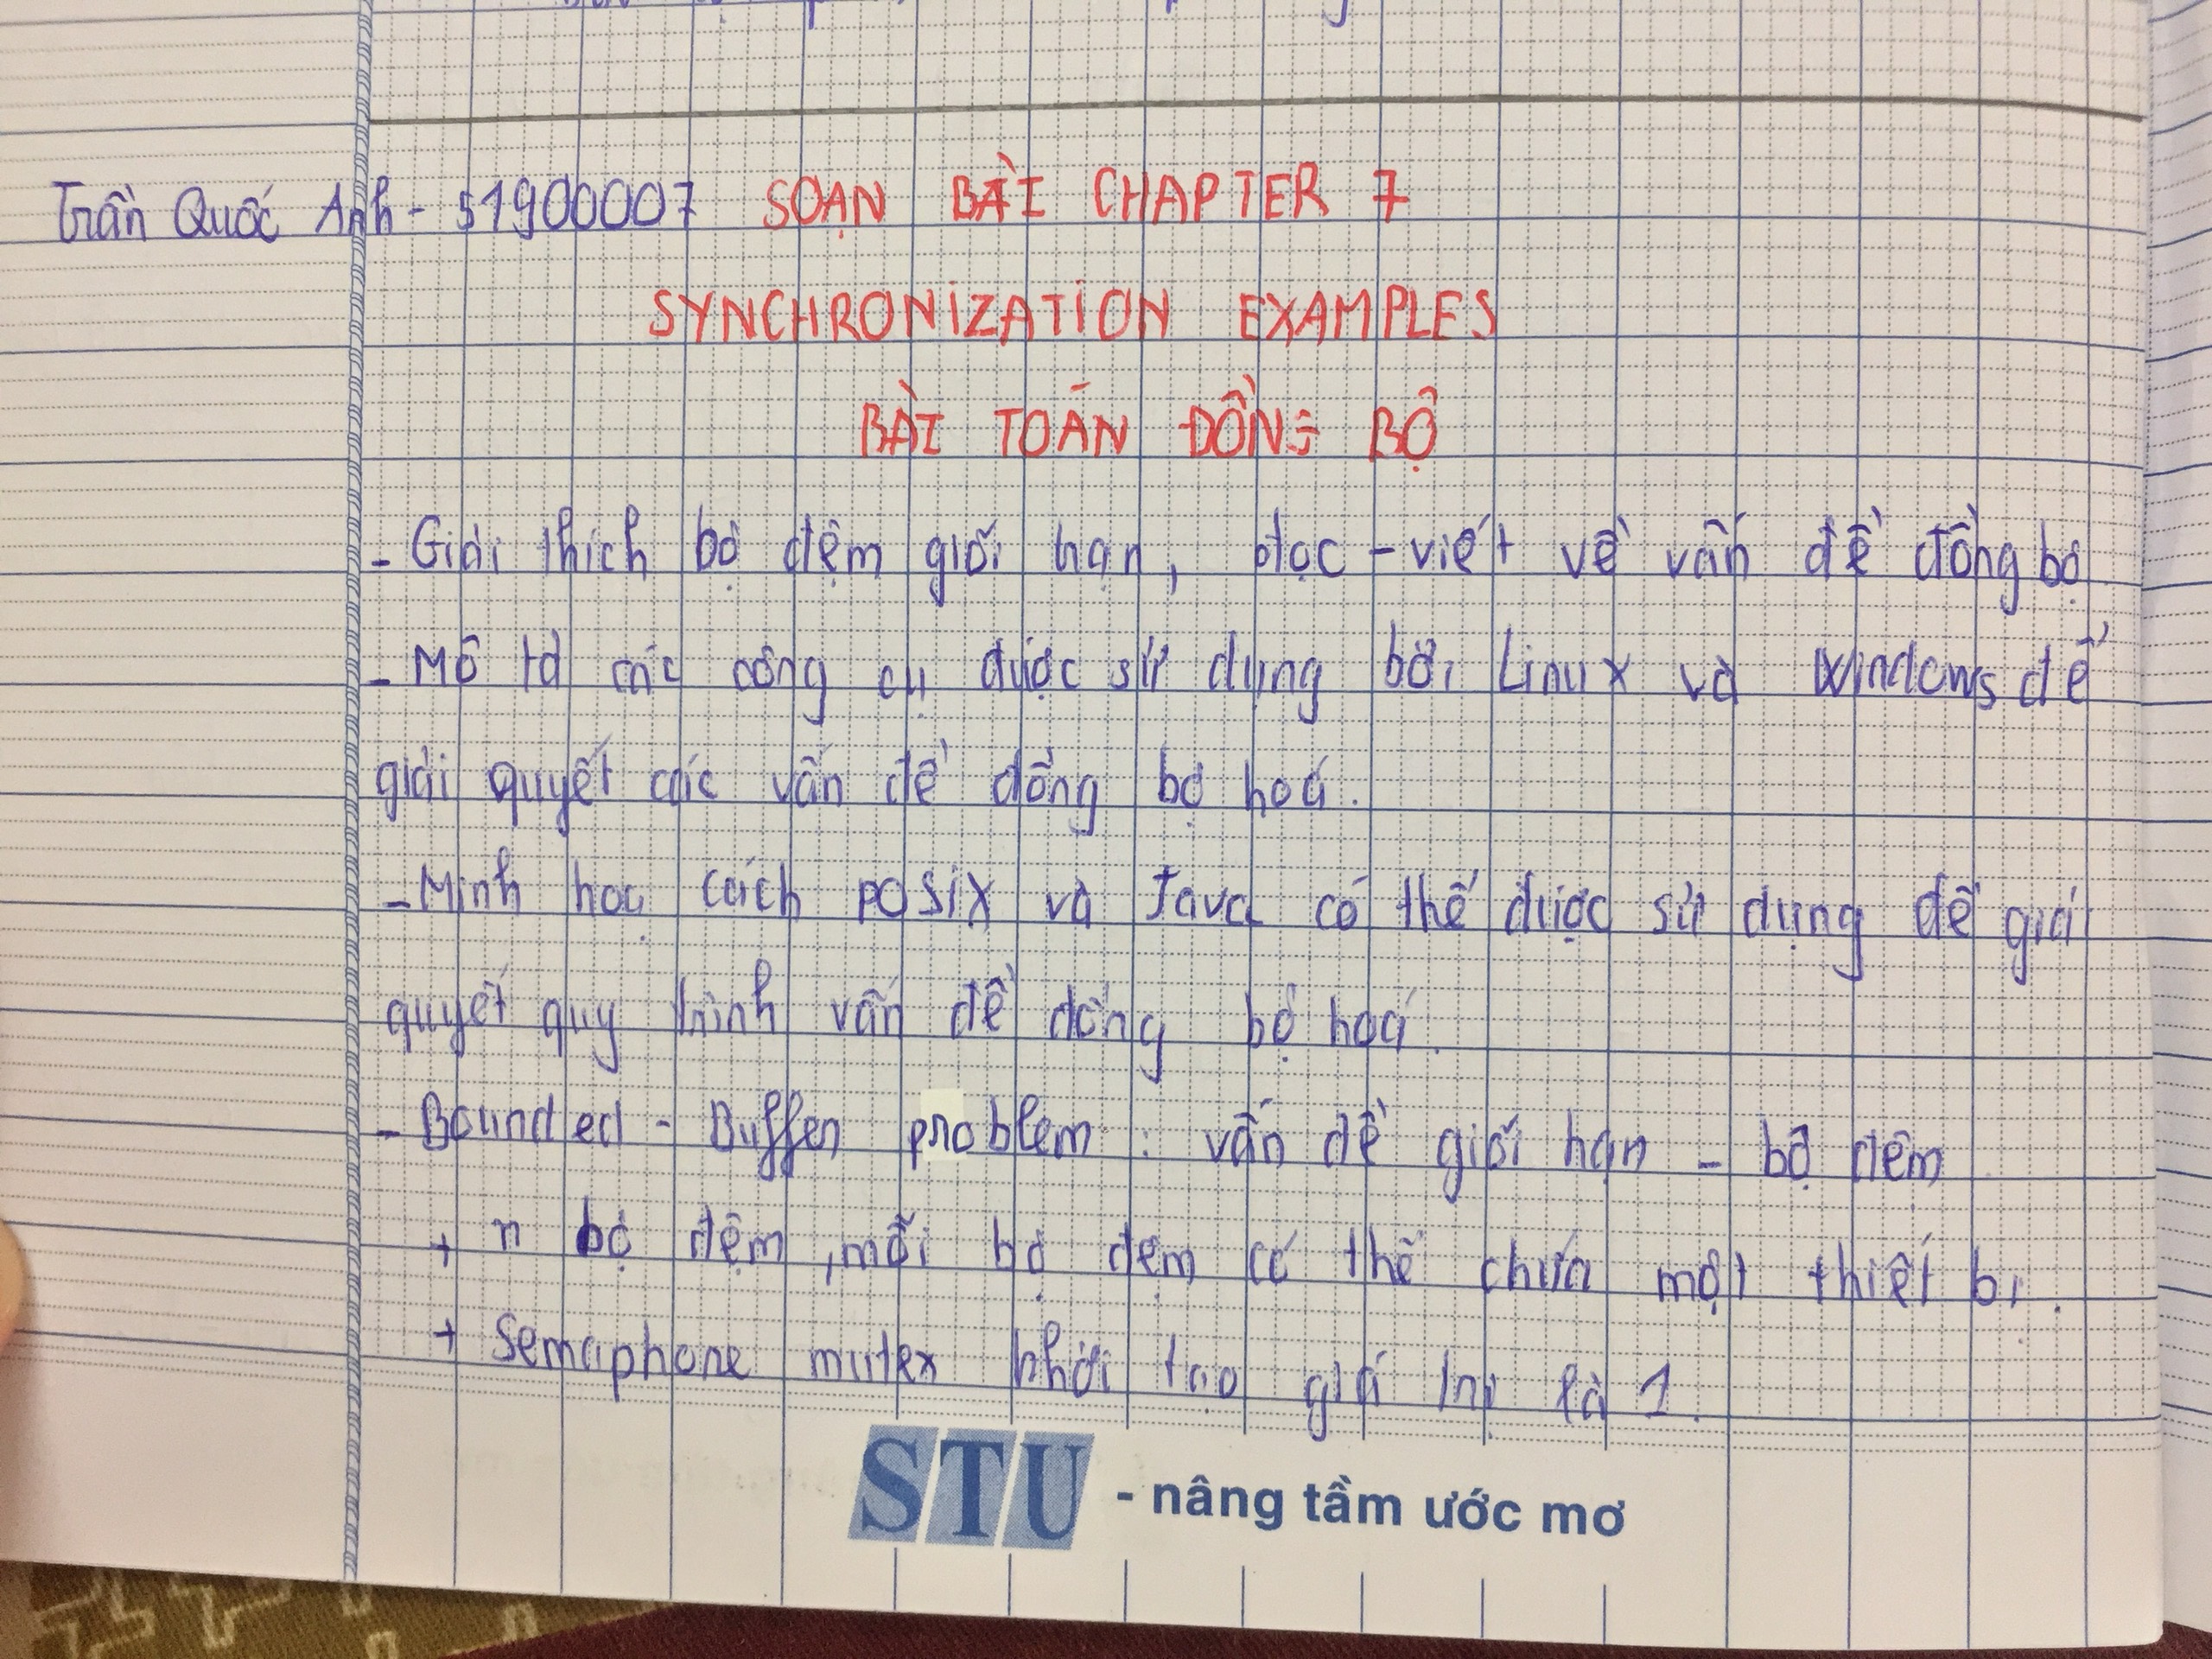 Trần Quốc Anh - 51900007 SOẠN BÀI CHAPTER 7
SYNCHRONIZATION EXAMPLES
BÀI TOÁN ĐỒNG BỘ
- Giải thích bộ đệm giới hạn, đọc - viết về vấn đề đồng bộ
- Mô tả các công cụ được sử dụng bởi Linux và Windows để
giải quyết các vấn đề đồng bộ hoá.
- Minh hoạ cách POSIX và Java có thể được sử dụng để giải
quyết quy trình vấn đề đồng bộ hoá.
- Bounded - Buffer problem : vấn đề giới hạn - bộ đệm
+ n bộ đệm, mỗi bộ đệm có thể chứa một thiết bị.
+ Semaphore mutex khởi tạo giá trị là 1.
STU - nâng tầm ước mơ